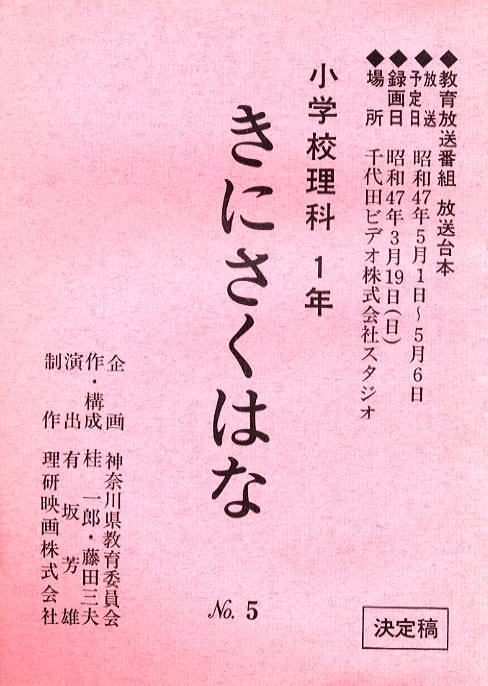 ◆教育放送番組 放送台本
◆放送予定日 昭和47年5月1日～5月6日
◆録画日 昭和47年3月19日(日)
◆場所 千代田ビデオ株式会社スタジオ
小学校理科 1年
きにさくはな
No. 5
企画 神奈川県教育委員会
作・構成 桂一郎・藤田三夫
演出 有坂芳雄
制作 理研映画株式会社
決定稿